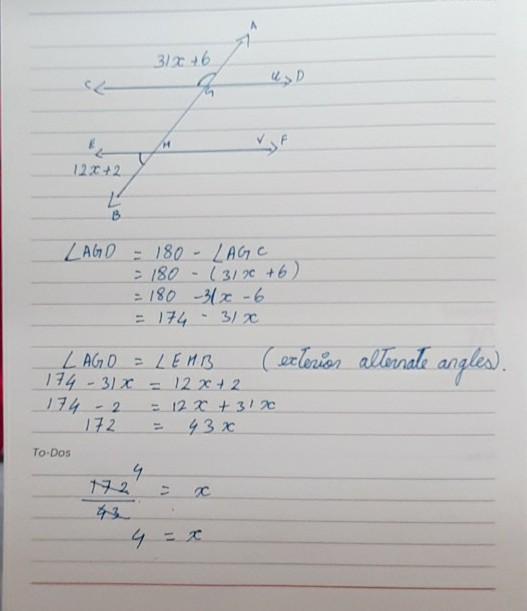 A
31x+6
C
G
u
D
E
H
V
F
12x+2
B
∠AGD = 180 - ∠AGC
= 180 - (31x +6)
= 180 -31x -6
= 174 - 31x
∠AGD = ∠EHB (exterior alternate angles).
174 - 31x = 12x+2
174 - 2 = 12x + 31x
172 = 43x
To-Dos
4
172
43
= x
4 = x